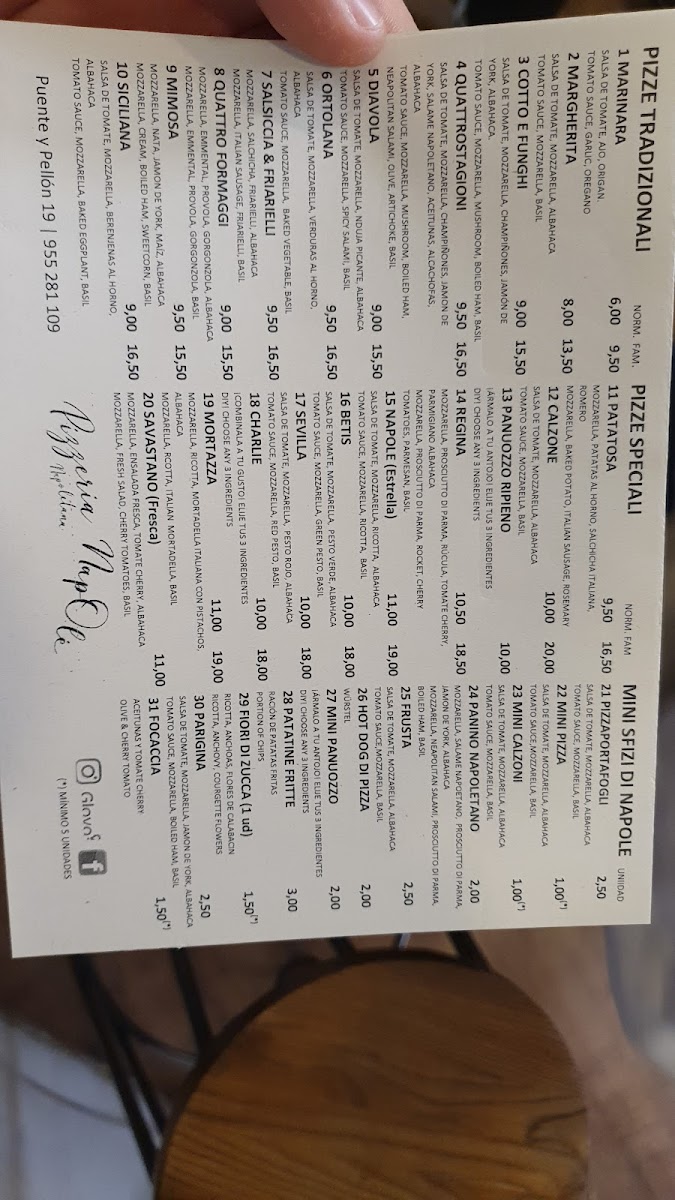 PIZZE TRADIZIONALI NORM. FAM.
1 MARINARA 6,00 9,50
SALSA DE TOMATE, AJO, ORIGAN.
TOMATO SAUCE, GARLIC, OREGANO
2 MARGHERITA 8,00 13,50
SALSA DE TOMATE, MOZZARELLA, ALBAHACA
TOMATO SAUCE, MOZZARELLA, BASIL
3 COTTO E FUNGHI 9,00 15,50
SALSA DE TOMATE, MOZZARELLA, CHAMPIÑONES, JAMÓN DE
YORK, ALBAHACA
TOMATO SAUCE, MOZZARELLA, MUSHROOM, BOILED HAM, BASIL
4 QUATTROSTAGIONI 9,50 16,50
SALSA DE TOMATE, MOZZARELLA, CHAMPIÑONES, JAMON DE
YORK, SALAME NAPOLETANO, ACEITUNAS, ALCACHOFAS,
ALBAHACA
TOMATO SAUCE, MOZZARELLA, MUSHROOM, BOILED HAM,
NEAPOLITAN SALAMI, OLIVE, ARTICHOKE, BASIL
5 DIAVOLA 9,00 15,50
SALSA DE TOMATE, MOZZARELLA, NDUJA PICANTE, ALBAHACA
TOMATO SAUCE, MOZZARELLA, SPICY SALAMI, BASIL
6 ORTOLANA 9,50 16,50
SALSA DE TOMATE, MOZZARELLA, VERDURAS AL HORNO,
ALBAHACA
TOMATO SAUCE, MOZZARELLA, BAKED VEGETABLE, BASIL
7 SALSICCIA & FRIARIELLI 9,50 16,50
MOZZARELLA, SALCHICHA, FRIARIELLI, ALBAHACA
MOZZARELLA, ITALIAN SAUSAGE, FRIARIELLI, BASIL
8 QUATTRO FORMAGGI 9,00 15,50
MOZZARELLA, EMMENTAL, PROVOLA, GORGONZOLA, ALBAHACA
MOZZARELLA, EMMENTAL, PROVOLA, GORGONZOLA, BASIL
9 MIMOSA 9,50 15,50
MOZZARELLA, NATA, JAMON DE YORK, MAÍZ, ALBAHACA
MOZZARELLA, CREAM, BOILED HAM, SWEETCORN, BASIL
10 SICILIANA 9,00 16,50
SALSA DE TOMATE, MOZZARELLA, BERENJENAS AL HORNO,
ALBAHACA
TOMATO SAUCE, MOZZARELLA, BAKED EGGPLANT, BASIL
Puente y Pellón 19 | 955 281 109
PIZZE SPECIALI NORM. FAM
11 PATATOSA 9,50 16,50
MOZZARELLA, PATATAS AL HORNO, SALCHICHA ITALIANA,
ROMERO
MOZZARELLA, BAKED POTATO, ITALIAN SAUSAGE, ROSEMARY
12 CALZONE 10,00 20,00
SALSA DE TOMATE, MOZZARELLA, ALBAHACA
TOMATO SAUCE, MOZZARELLA, BASIL
13 PANUOZZO RIPIENO 10,00
¡ÁRMALO A TU ANTOJO! ELIJE TUS 3 INGREDIENTES
DIY! CHOOSE ANY 3 INGREDIENTS
14 REGINA 10,50 18,50
MOZZARELLA, PROSCIUTTO DI PARMA, RÚCULA, TOMATE CHERRY,
PARMIGIANO ALBAHACA
MOZZARELLA, PROSCIUTTO DI PARMA, ROCKET, CHERRY
TOMATOES, PARMESAN, BASIL
15 NAPOLE (Estrella) 11,00 19,00
SALSA DE TOMATE, MOZZARELLA, RICOTTA, ALBAHACA
TOMATO SAUCE, MOZZARELLA, RICOTTA, BASIL
16 BETIS 10,00 18,00
SALSA DE TOMATE, MOZZARELLA, PESTO VERDE, ALBAHACA
TOMATO SAUCE, MOZZARELLA, GREEN PESTO, BASIL
17 SEVILLA 10,00 18,00
SALSA DE TOMATE, MOZZARELLA, PESTO ROJO, ALBAHACA
TOMATO SAUCE, MOZZARELLA, RED PESTO, BASIL
18 CHARLIE 10,00 18,00
¡COMBINALO A TU GUSTO! ELIJE TUS 3 INGREDIENTES
DIY! CHOOSE ANY 3 INGREDIENTS
19 MORTAZZA 11,00 19,00
MOZZARELLA, RICOTTA, MORTADELLA ITALIANA CON PISTACHOS,
ALBAHACA
MOZZARELLA, RCOTTA, ITALIAN MORTADELLA, BASIL
20 SAVASTANO (Fresca) 11,00
MOZZARELLA, ENSALADA FRESCA, TOMATE CHERRY, ALBAHACA
MOZZARELLA, FRESH SALAD, CHERRY TOMATOES, BASIL
Pizzeria NapOlè
Napolitana
MINI SFIZI DI NAPOLE UNIDAD
21 PIZZAPORTAFOGLI 2,50
SALSA DE TOMATE, MOZZARELLA, ALBAHACA
TOMATO SAUCE, MOZZARELLA, BASIL
22 MINI PIZZA 1,00(*)
SALSA DE TOMATE, MOZZARELLA, ALBAHACA
TOMATO SAUCE,MOZZARELLA, BASIL
23 MINI CALZONI 1,00(*)
SALSA DE TOMATE, MOZZARELLA, ALBAHACA
TOMATO SAUCE, MOZZARELLA, BASIL
24 PANINO NAPOLETANO 2,00
MOZZARELLA, SALAME NAPOETANO, PROSCIUTTO DI PARMA,
JAMON DE YORK, ALBAHACA
MOZZARELLA, NEAPOLITAN SALAMI, PROSCIUTTO DI PARMA,
BOILED HAM, BASIL
25 FRUSTA 2,50
SALSA DE TOMATE, MOZZARELLA, ALBAHACA
TOMATO SAUCE,MOZZARELLA, BASIL
26 HOT DOG DI PIZZA 2,00
WÜRSTEL
27 MINI PANUOZZO 2,00
¡ÁRMALO A TU ANTOJO! ELIJE TUS 3 INGREDIENTES
DIY! CHOOSE ANY 3 INGREDIENTS
28 PATATINE FRITTE 3,00
RACIÓN DE PATATAS FRITAS
PORTION OF CHIPS
29 FIORI DI ZUCCA (1 ud) 1,50(*)
RICOTTA, ANCHOAS, FLORES DE CALABACIN
RICOTTA, ANCHOVY, COURGETTE FLOWERS
30 PARIGINA 2,50
SALSA DE TOMATE, MOZZARELLA, JAMON DE YORK, ALBAHACA
TOMATO SAUCE, MOZZARELLA, BOILED HAM, BASIL
31 FOCACCIA 1,50(*)
ACEITUNAS Y TOMATE CHERRY
OLIVE & CHERRY TOMATO
(*) MÍNIMO 5 UNIDADES
Glovo